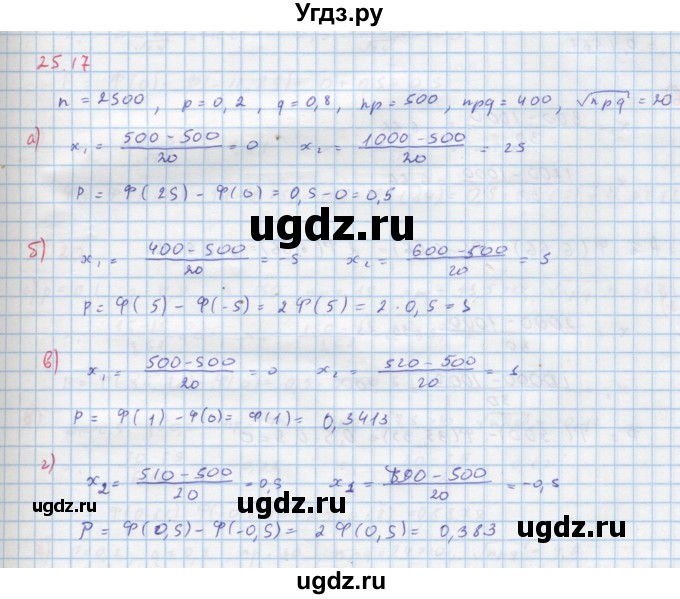 Угдз.ру
25.17
n = 2500, p = 0,2, q = 0,8, np = 500, npq = 400, √npq = 20
а) x₁ = (500 - 500)/20 = 0 x₂ = (1000 - 500)/20 = 25
P = φ(25) - φ(0) = 0,5 - 0 = 0,5
ugdz.ru
б) x₁ = (400 - 500)/20 = -5 x₂ = (600 - 500)/20 = 5
ugdz.ru
P = φ(5) - φ(-5) = 2φ(5) = 2 · 0,5 = 1
ugdz.ru
в) x₁ = (500 - 500)/20 = 0 x₂ = (520 - 500)/20 = 1
P = φ(1) - φ(0) = φ(1) = 0,3413
ugdz.ru
г) x₂ = (510 - 500)/20 = 0,5 x₁ = (490 - 500)/20 = -0,5
ugdz.ru
P = φ(0,5) - φ(-0,5) = 2φ(0,5) = 0,383
ugdz.ru
ugdz.ru